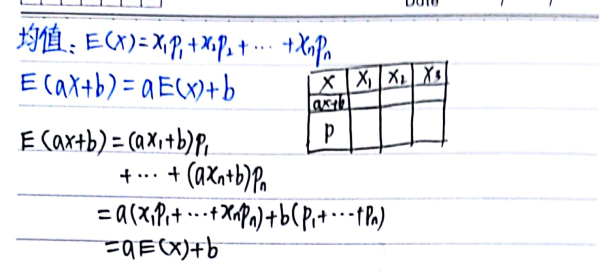 Date / /
均值: E(X)=x₁p₁+x₂p₂+⋯+xₙpₙ
E(aX+b)=aE(X)+b
X X₁ X₂ X₃
ax+b
P
E(ax+b)=(ax₁+b)p₁
+⋯+(axₙ+b)pₙ
=a(x₁p₁+⋯+xₙpₙ)+b(p₁+⋯+pₙ)
=aE(X)+b